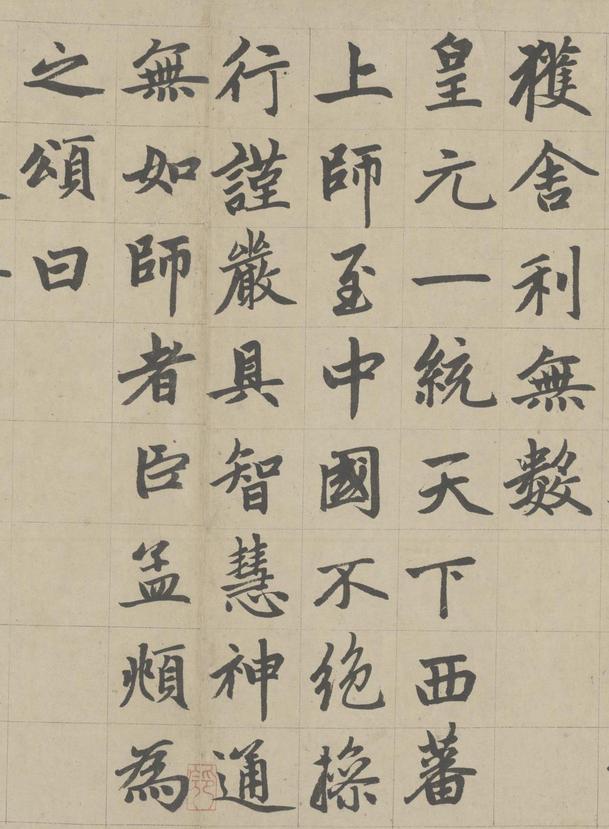 獲舍利無數
皇元一統天下西蕃
上師至中國不絕操
行謹嚴具智慧神通
無如師者臣孟頫為
之頌曰